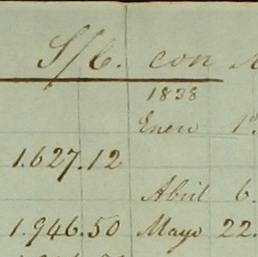 S/C. con
1838
Enero 1º
1.627.12
Abril 6.
1.946.50 Mayo 22.